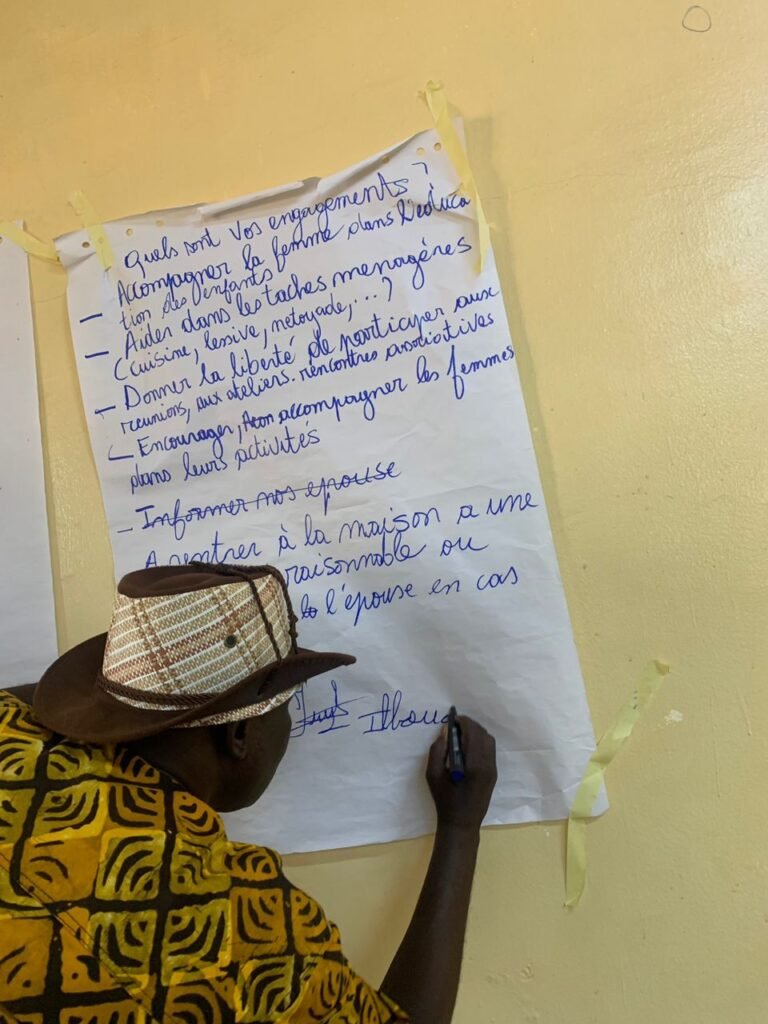 Quels sont vos engagements ?
Accompagner la femme dans l'educa
tion des enfants
- Aider dans les taches menagères
(cuisine, lessive, netoyade,...)
- Donner la liberté de participer aux
reunions, aux ateliers. rencontres associatives
- Encourager, accompagner les femmes
dans leurs activités
- Informer nos epouse
A rentrer à la maison a une
raisonnable ou
l'épouse en cas